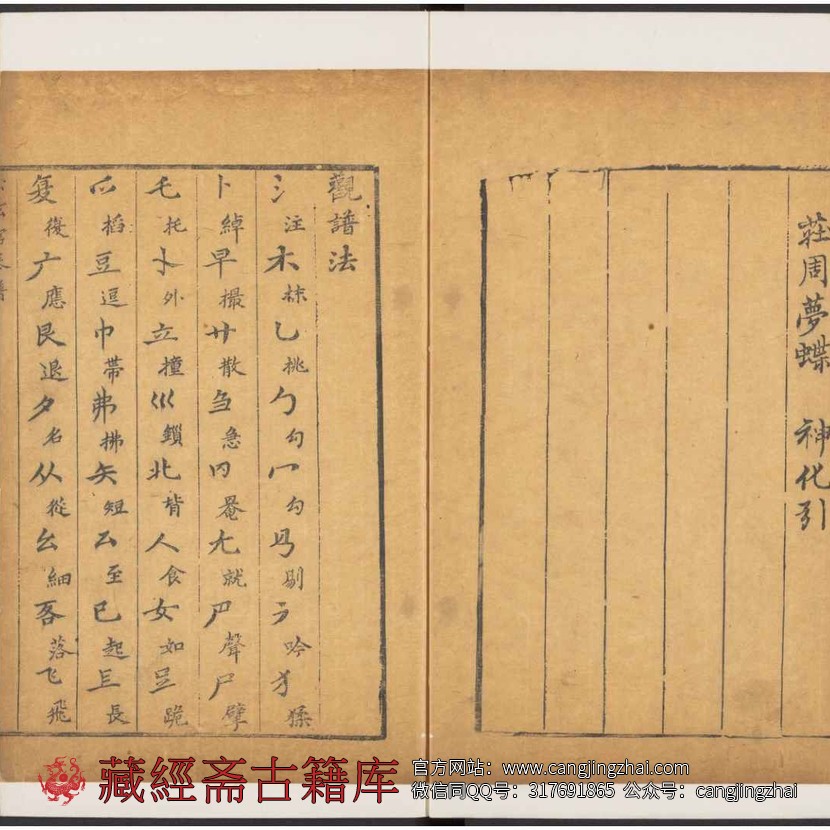 莊周夢蝶 神化引
觀譜法
氵注木抹乙挑勹勾冖勾㔾剔ラ吟犭猱
卜綽早撮廾散刍急𠕁罨尢就尸聲尸擘
乇托卜外立撞巛鎖北背人食女如𧾷跪
爫搯豆逗巾帶弗拂矢短厶至巳起镸長
复復广應艮退夕名从從幺細客落飞飛
藏經斋古籍库
官方网站：www.cangjingzhai.com
微信同QQ号：317691865 公众号：cangjingzhai